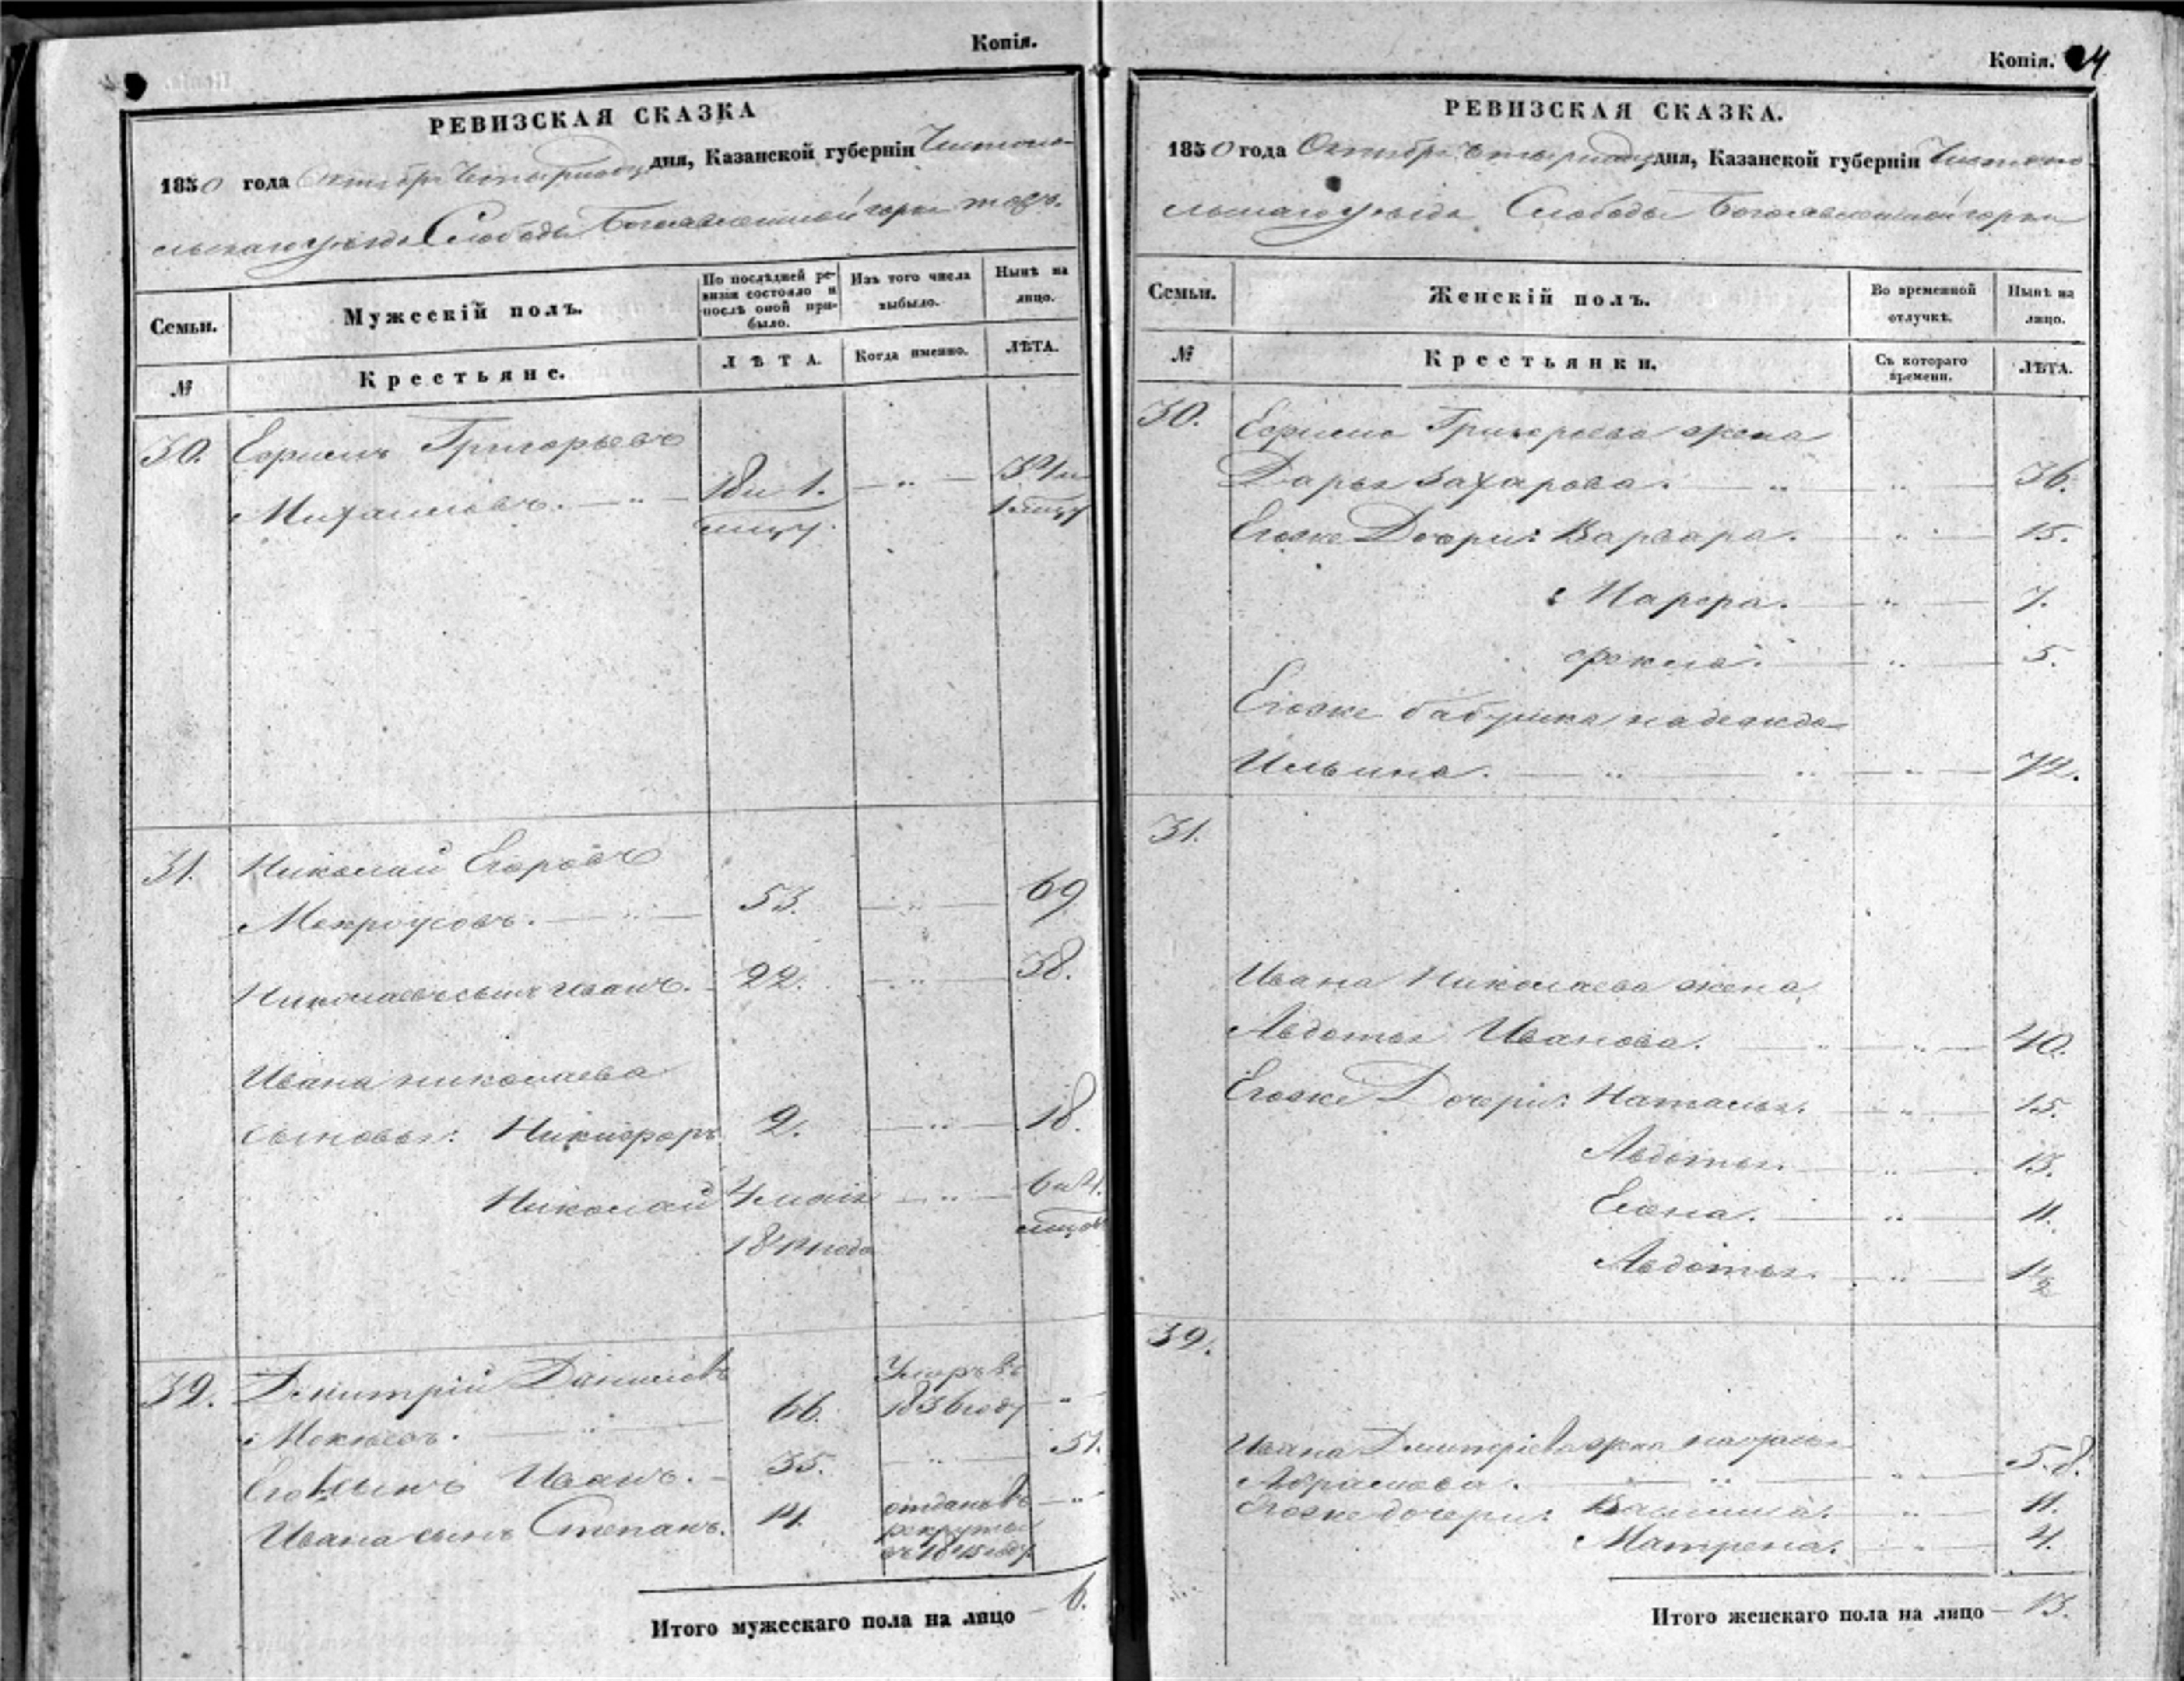 Копія.
РЕВИЗСКАЯ СКАЗКА
1850 года Октября дня, Казанской губерніи Чистопо-
льскаго уѣзда Слободы Богоявленной горы тожъ.
Семьи.
Мужескій полъ.
По послѣдней ре-
визіи состояло и
послѣ оной при-
было.
Изъ того числа
выбыло.
Нынѣ на
лицо.
№
Крестьяне.
ЛѢТА.
Когда именно.
ЛѢТА.
30. Ефимъ Григорьевъ
Михаиловъ. — „ — 18 и 1. — „ —
31. Николай Егоровъ
Мокроусовъ. — „ — 53. — „ — 69
Николаевъ сынъ Иванъ. 22. — „ — 38.
Ивана Николаева
сыновья: Никифоръ 2. — „ — 18.
Николай 4 мая — „ — 6 и 4.
184 года
32. Дмитрій Даниловъ Умеръ въ
Мокѣевъ. — „ — 66. 1836 году — „
Его сынъ Иванъ. — 35. — „ — 51.
Ивана сынъ Степанъ. 14. отданъ въ — „
рекруты
въ 1845 году.
Итого мужескаго пола на лицо — 6.
Копія. 24
РЕВИЗСКАЯ СКАЗКА.
1850 года Октября дня, Казанской губерніи Чистопо-
льскаго уѣзда Слободы Богоявленной горы
Семьи.
Женскій полъ.
Во временной
отлучкѣ.
Нынѣ на
лицо.
№
Крестьянки.
Съ котораго
времени.
ЛѢТА.
30. Ефима Григорьева жена
Дарья Захарова. — „ — „ — 36.
Егоже Дочери: Варвара. — „ — 15.
Марфа. — „ — 7.
Фекла. — „ — 5.
Егоже бабушка надежда
Ильина. — „ — „ — „ — 72.
31.
Ивана Николаева жена
Авдотья Иванова. — „ — „ — 40.
Егоже Дочери: Наталья. — „ — 15.
Авдотья. — „ — 13.
Елена. — „ — 11.
Авдотья. — „ — 1½
32.
Ивана Дмитріева жена наталья
Абрамова. — „ — „ — 58.
Егоже дочери: — „ — 11.
Матрена. — „ — 4.
Итого женскаго пола на лицо — 13.